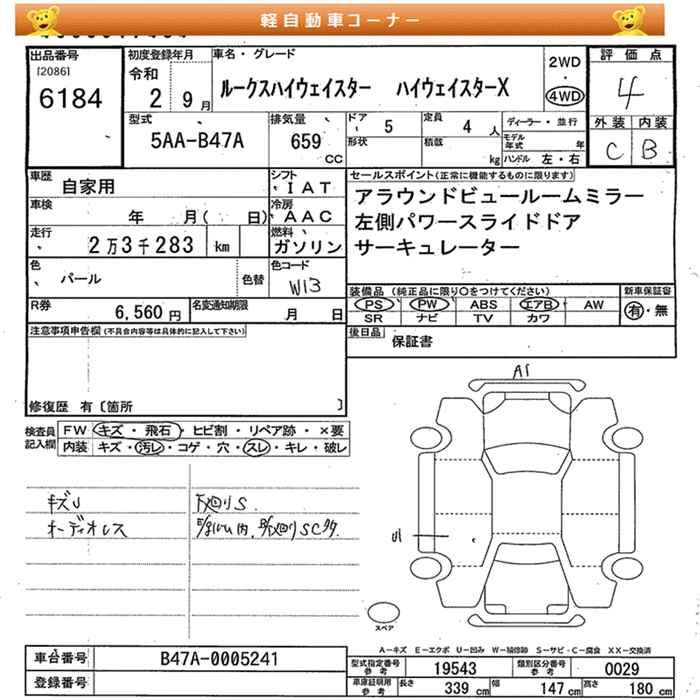 軽自動車コーナー
出品番号
[2086]
6184
初度登録年月
令和
2 9月
車名・グレード
ルークスハイウェイスター ハイウェイスターX
2WD
・
4WD
評価点
4
外装 内装
C B
型式
5AA-B47A
排気量
659
CC
ドア
5
形状
定員
4 人
積載
kg
ディーラー・並行
モデル年式 年
ハンドル 左・右
車歴
自家用
シフト
IAT
車検
年 月( 日)
冷房
AAC
走行
2万3千283 km
燃料
ガソリン
色
パール
色替
色コード
W13
R券
6,560 円
名変通知期限
月 日
セールスポイント(正常に機能するものに限ります)
アラウンドビュールームミラー
左側パワースライドドア
サーキュレーター
装備品(純正品に限り○をつけてください)
PS PW ABS エアB AW
SR ナビ TV カワ
新車保証書
有・無
後日品
保証書
注意事項申告欄(不具合内容等は具体的に記入して下さい)
修復歴 有〔箇所 〕
検査員記入欄
FW キズ・飛石・ヒビ割・リペア跡・×要
内装 キズ・汚レ・コゲ・穴・スレ・キレ・破レ
キズU
オーディオレス
下回りS
A1
U1
スペア
A−キズ E−エクボ U−凹み W−補修跡 S−サビ・C−腐食 XX−交換済
車台番号
B47A-0005241
登録番号
型式指定番号参考
19543
類別区分番号参考
0029
車庫証明用参考
長さ 339 cm 幅 147 cm 高さ 180 cm